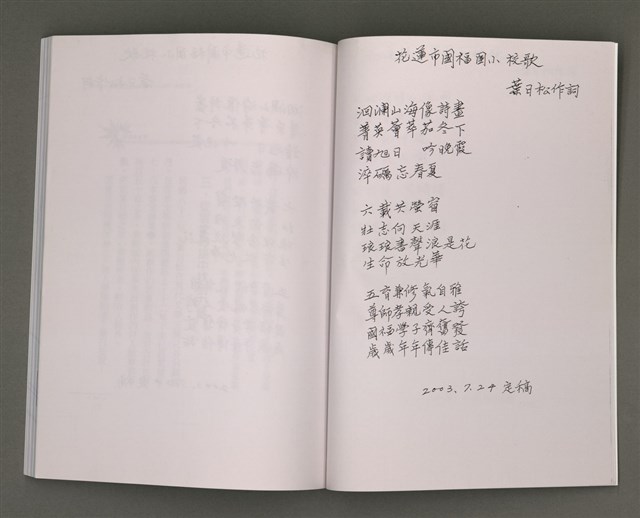 花蓮市國福國小校歌
葉日松作詞
洄瀾山海像詩畫
菁英薈萃茄冬下
讀旭日 吟晚霞
淬礪忘春夏
六載共榮寶
壯志向天涯
琅琅書聲浪是花
生命放光華
五育兼修氣自雅
尊師孝親受人誇
國福學子齊奮發
歲歲年年傳佳話
2003.7.24 定稿